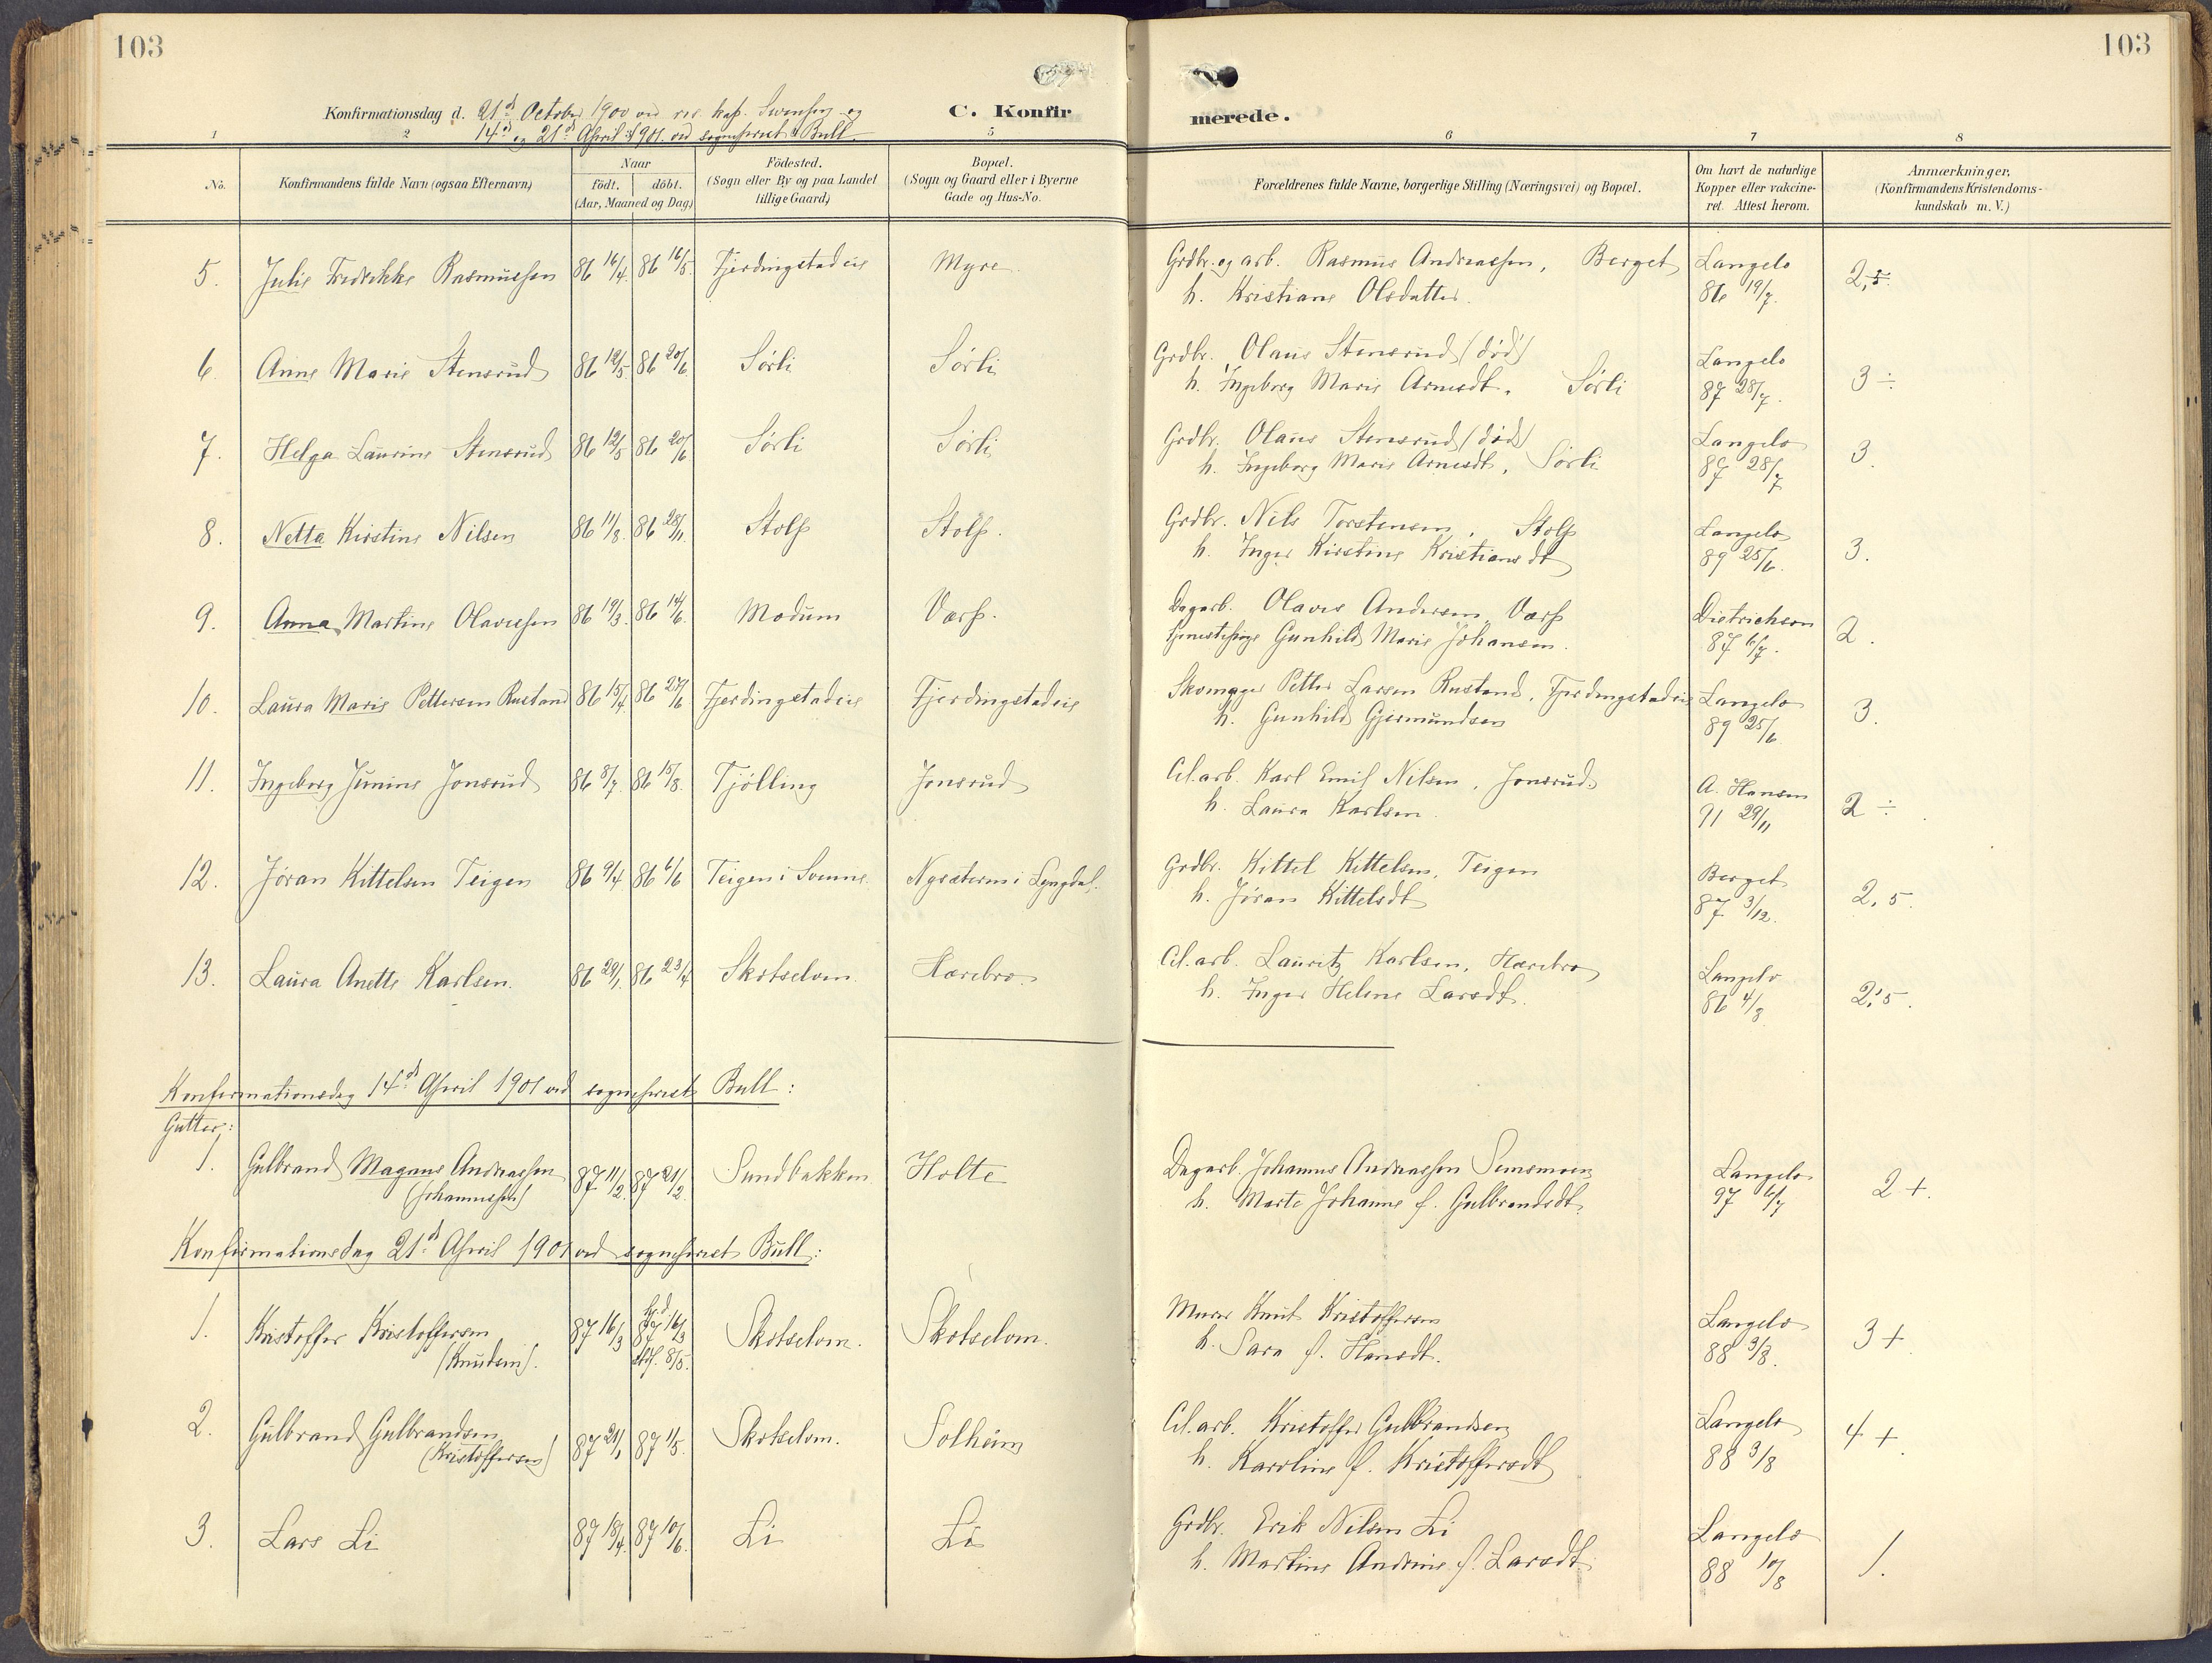 103
103
Konfirmationsdag d. 21de October 1900 ved res. kap. Svensen og
14de og 21de April 1901. ved sognepræst Bull
C. Konfir
merede.
1 2 5 6 7 8
No.
Konfirmandens fulde Navn (ogsaa Efternavn)
Naar
födt. döbt.
(Aar, Maaned og Dag)
Födested.
(Sogn eller By og paa Landet
tillige Gaard)
Bopæl.
(Sogn og Gaard eller i Byerne
Gade og Hus-No.
Forældrenes fulde Navne, borgerlige Stilling (Næringsvei) og Bopæl.
Om havt de naturlige
Kopper eller vakcine-
ret. Attest herom.
Anmærkninger,
(Konfirmandens Kristendoms-
kundskab m. V.)
5. Julie Fredrikke Rasmussen 86 16/4. 86 16/5. Fjerdingstadeie Myre. Grdbr. og arb. Rasmus Andreassen, Berget Langelo 2,5
h. Kristiane Olsdatter. 86 19/7.
6. Anne Marie Stensrud 86 12/5. 86 20/6. Sörli Sörli Grdbr. Olaus Stensrud (död) Langelo 3 ÷
h. Ingeborg Marie Arnesdt. Sörli 87 28/7.
7. Helga Laurine Stensrud 86 12/5 86 20/6 Sörli Sörli Grdbr. Olaus Stensrud (död) Langelo 3.
h. Ingeborg Marie Arnesdt, Sörli 87 28/7
8. Netta Kirstine Nilsen 86 11/8. 86 28/11. Stolp Stolp. Grdbr. Nils Torstensen, Stolp Langelo 3.
h. Inger Kirstine Kristiansdt 89 25/6.
9. Anna Martine Olavessen 86 19/3. 86 14/6. Modum Varp. Dagarb. Olaves Andersen, Varp Dietrichson 2.
Gunhild Marie Johansen. 87 6/7.
10. Laura Marie Pettersen Rustand 86 15/4. 86 27/6 Fjerdingstadeie Fjerdingstadeie Skomager Petter Larsen Rustand, Fjerdingstadeie Langelo 3.
h. Gunhild Gjermundsen 89 25/6
11. Ingeborg Junine Jonsrud 86 8/7. 86 15/8. Tjölling Jonsrud Cel.arb. Karl Emil Nilsen, Jonsrud. A. Hansen 2 ÷
h. Laura Karlsen. 91 29/11
12. Jöran Kittelsen Teigen 86 9/4 86 6/6 Teigen i Svenne Nysæteren i Lyngdal. Grdbr. Kittel Kittelsen, Teigen Berget 2,5.
h. Jöran Kittelsdt 87 3/12.
13. Laura Anette Karlsen. 86 29/1. 86 23/4 Skotselven. Hærebro. Cel.arb. Lauritz Karlsen, Hærebro Langelo 2,5.
h. Inger Helene Larsdt. 86 4/8
Konfirmationsdag 14de April 1901 ved sognepræst Bull:
Gutter:
1. Gulbrand Magnus Andreassen 87 11/2. 87 21/2. Sundbakken. Holte Dagarb. Johannes Andreassen Langelo 2 +.
(Johannessen) h. Marte Johanne f. Gulbrandsdt. 97 6/7
Konfirmationsdag 21de April 1901 ved sognepræst Bull:
1. Kristoffer Kristoffersen 87 16/3 hj.d. 87 16/3 Skotselven. Skotselven. Murer Knut Kristoffersen Langelo 3 +
(Knudsen). stdf. 8/5. h. Sara f. Hansdt. 88 3/8.
2. Gulbrand Gulbrandsen 87 21/1 87 1/5. Skotselven. Solheim Cel.arb. Kristoffer Gulbrandsen Langelo 4 +
(Kristoffersen) h. Karoline f. Kristoffersdt 88 3/8
3. Lars Li 87 18/4. 87 10/6. Li Li Grdbr. Erik Nilsen Li Langelo 1.
h. Martine Andrine f. Larsdt. 88 10/8